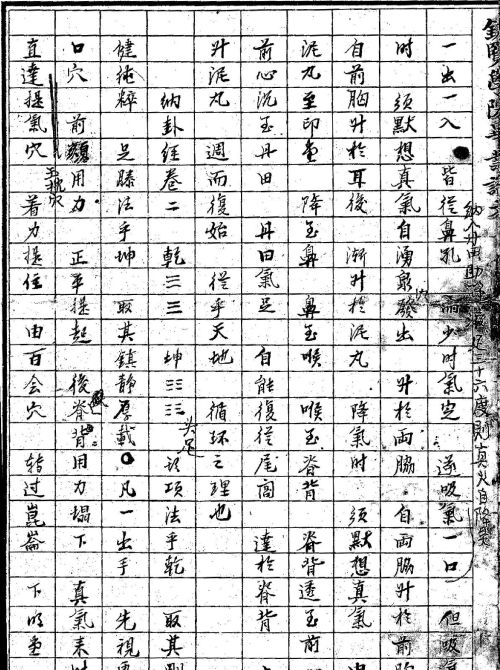 一出一入 皆從鼻孔 而少时氣定 遂吸氣一口 但吸
納人丹田助 三十六度則真火自降矣
时 須默想真氣自湧泉發出 升於两脇 自两脇升於前
自前胸升於耳後 漸升於泥丸 降氣时 須默想真氣
泥丸至印堂 降至鼻 鼻至喉 喉至脊背 脊背透至前
前心沉至丹田 丹田氣足 自能復從尾閭 達於脊背
升泥丸 週而復始 從乎天地 循环之理也
納卦經卷二 乾☰☰ 坤☷☷ 头足 頭項法乎乾 取其剛
健純粹 足膝法乎坤 取其鎮静厚載 凡一出手 先視
口穴 前 用力 正平提起 後脊背用力塌下 真氣来时
直達提氣穴 玉枕穴 着力提住 由百会穴 转过崑崙 下明堂